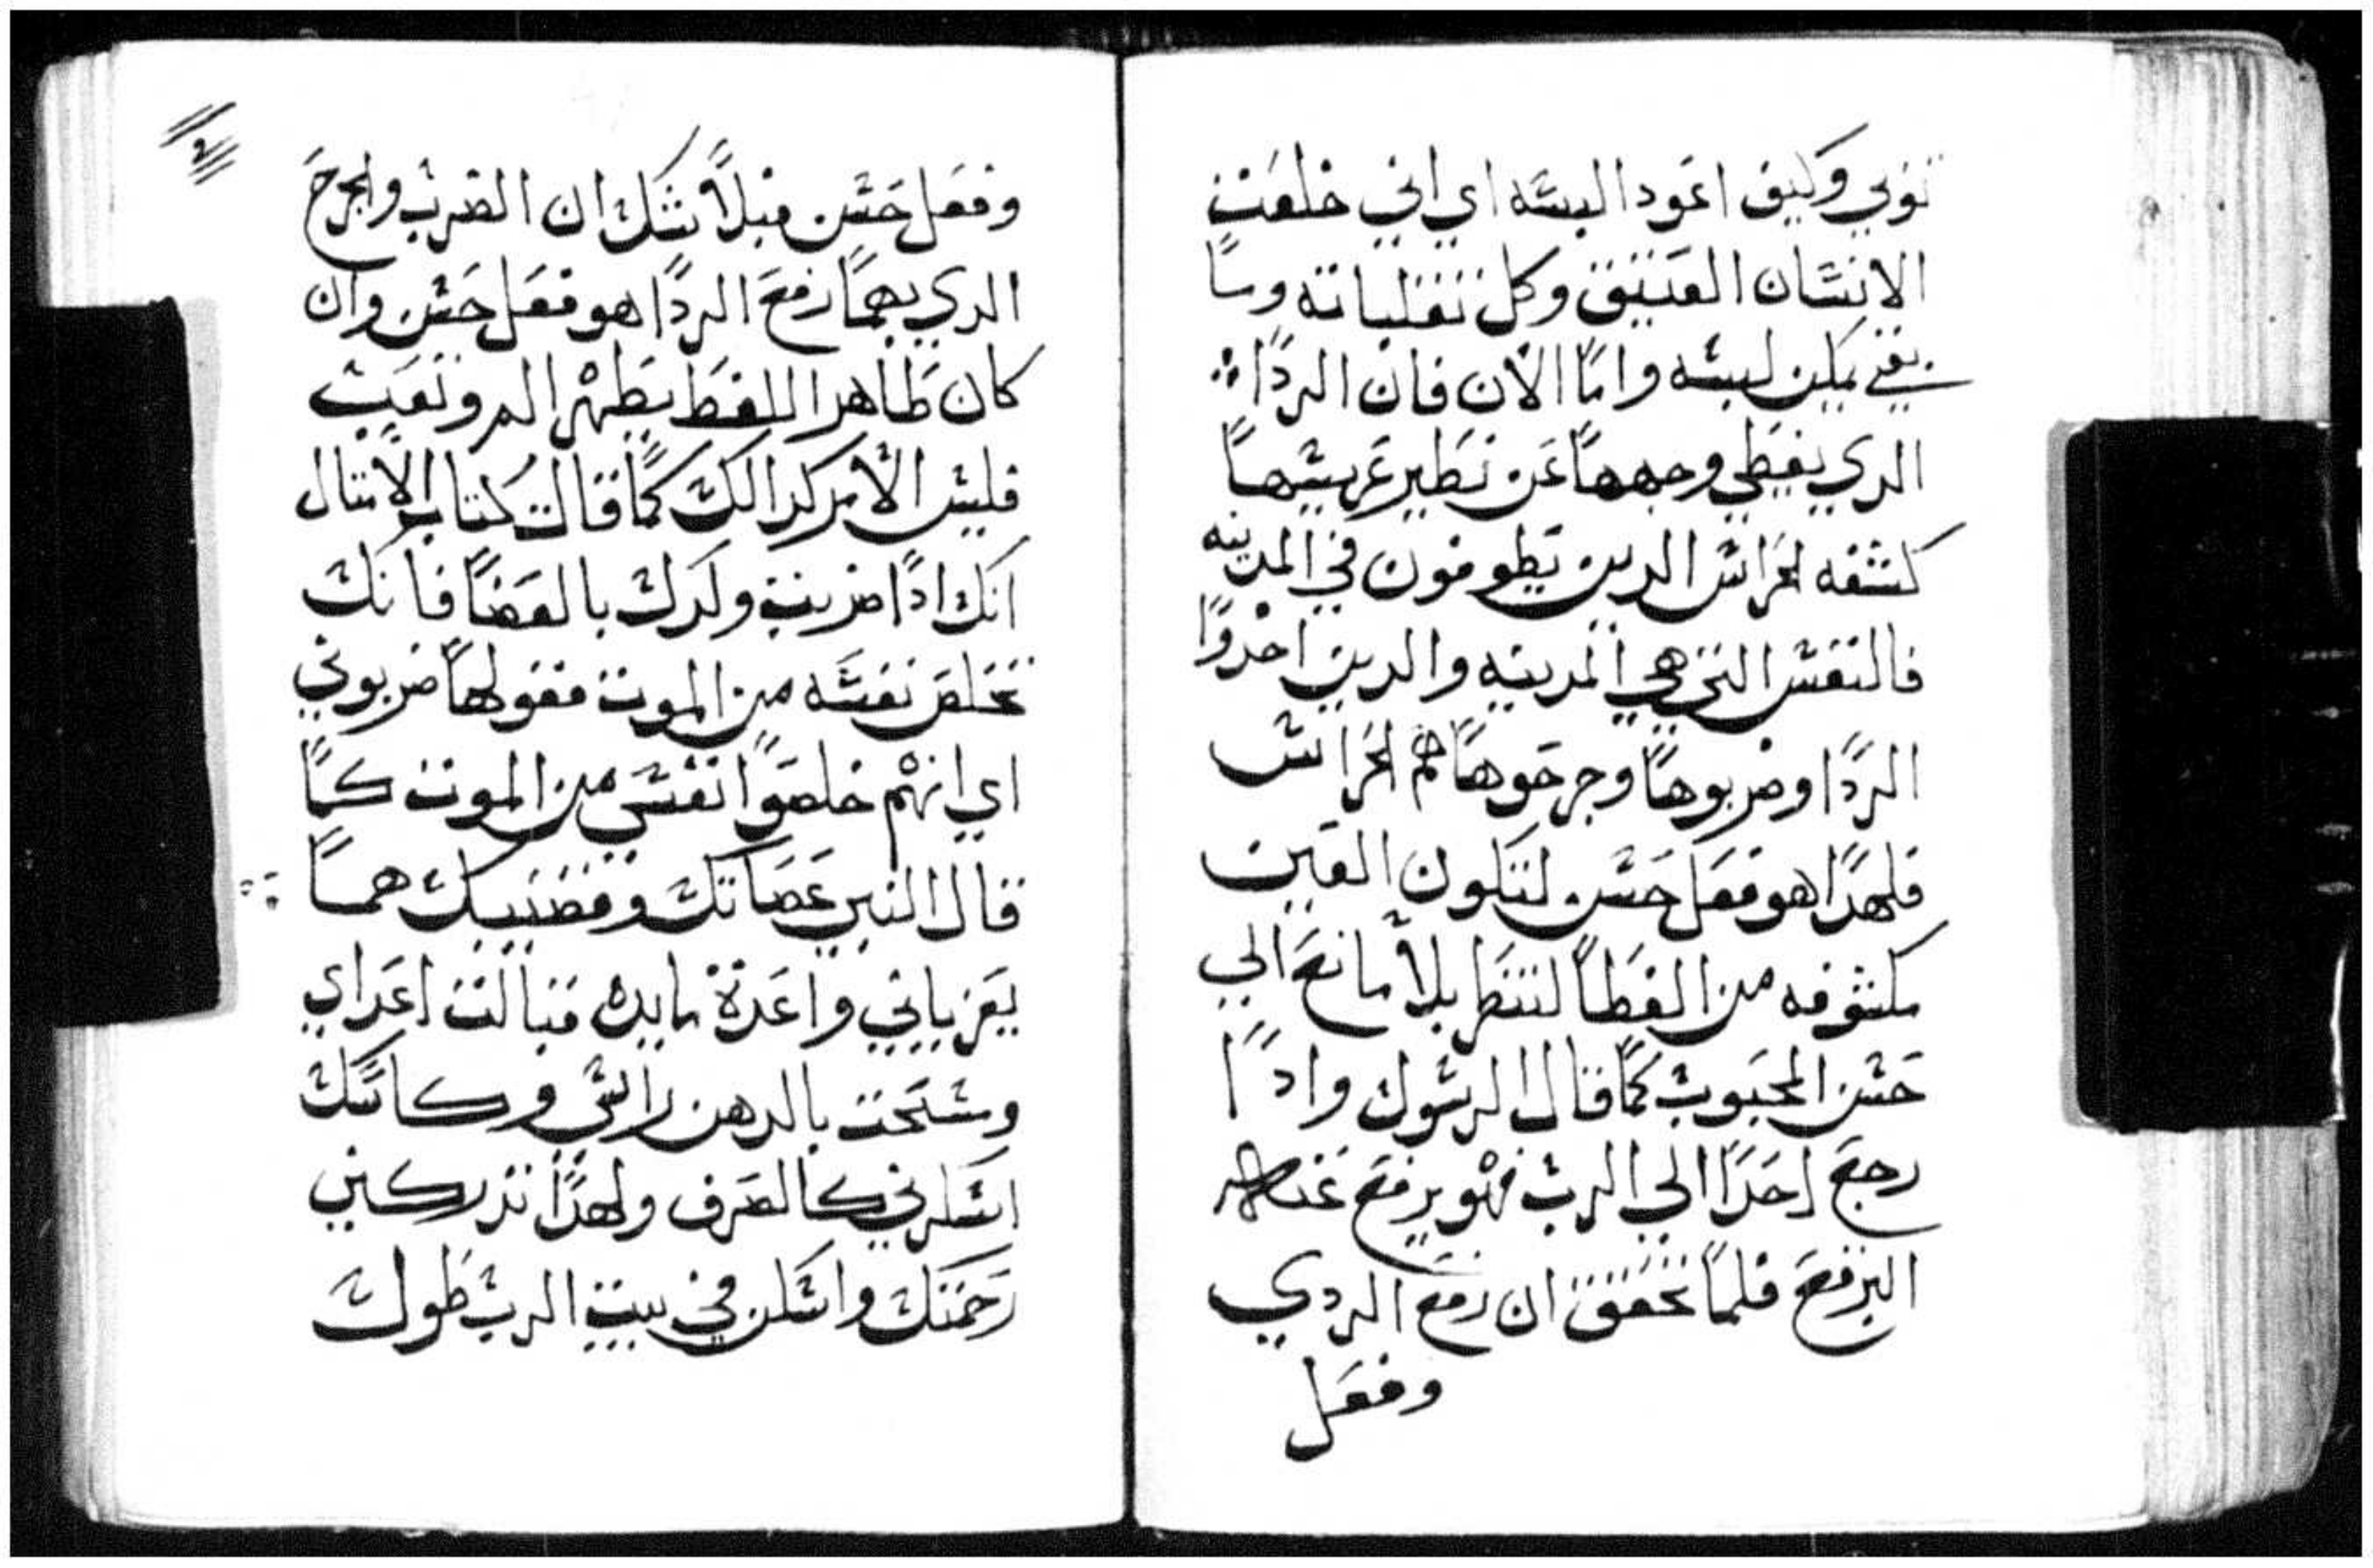 توبي وكيف اعود البسه اي اني خلعت
الانسان العتيق وكل تقلباته وسا
بقي يمكن لبسه واما الان فان الردا
الدي يغطي وجهها عن نطير عريسها
كشفه لحراس الدين يطوفون في المدينه
فالنفس التي هي المدينه والدين اخدوا
الردا وضربوها وجرحوها هم الحراس
فلهدا هو فعل حسن لتكون العين
مكشوفه من الغطا لتنظر بلا مانع الي
حسن المحبوب كما قال الرسول وادا
رجع احدا الي الرب فهو يرفع عنه
البرقع فلما تحقق ان رفع الردي
وفعل
وفعل حسن فبلا شك ان الضرب والجرح
الدي بهما رفع الردا هو فعل حسن وان
كان ظاهر اللفظ يظهر الم وتعب
فليس الامر كدالك كما قالت كتاب الامتال
انك ادا ضربت ولدك بالعصا فانك
تخلص نفسه من الموت فقولها ضربوني
اي انهم خلصوا نفسي من الموت كما
قال النبي عصاتك وقضيبك هما
يعزياني واعدة مايده قبالت اعداي
ومسحت بالدهن راسي وكاسك
اسكرني كالصرف ولهدا تدركني
رحمتك واسكن في بيت الرب طول